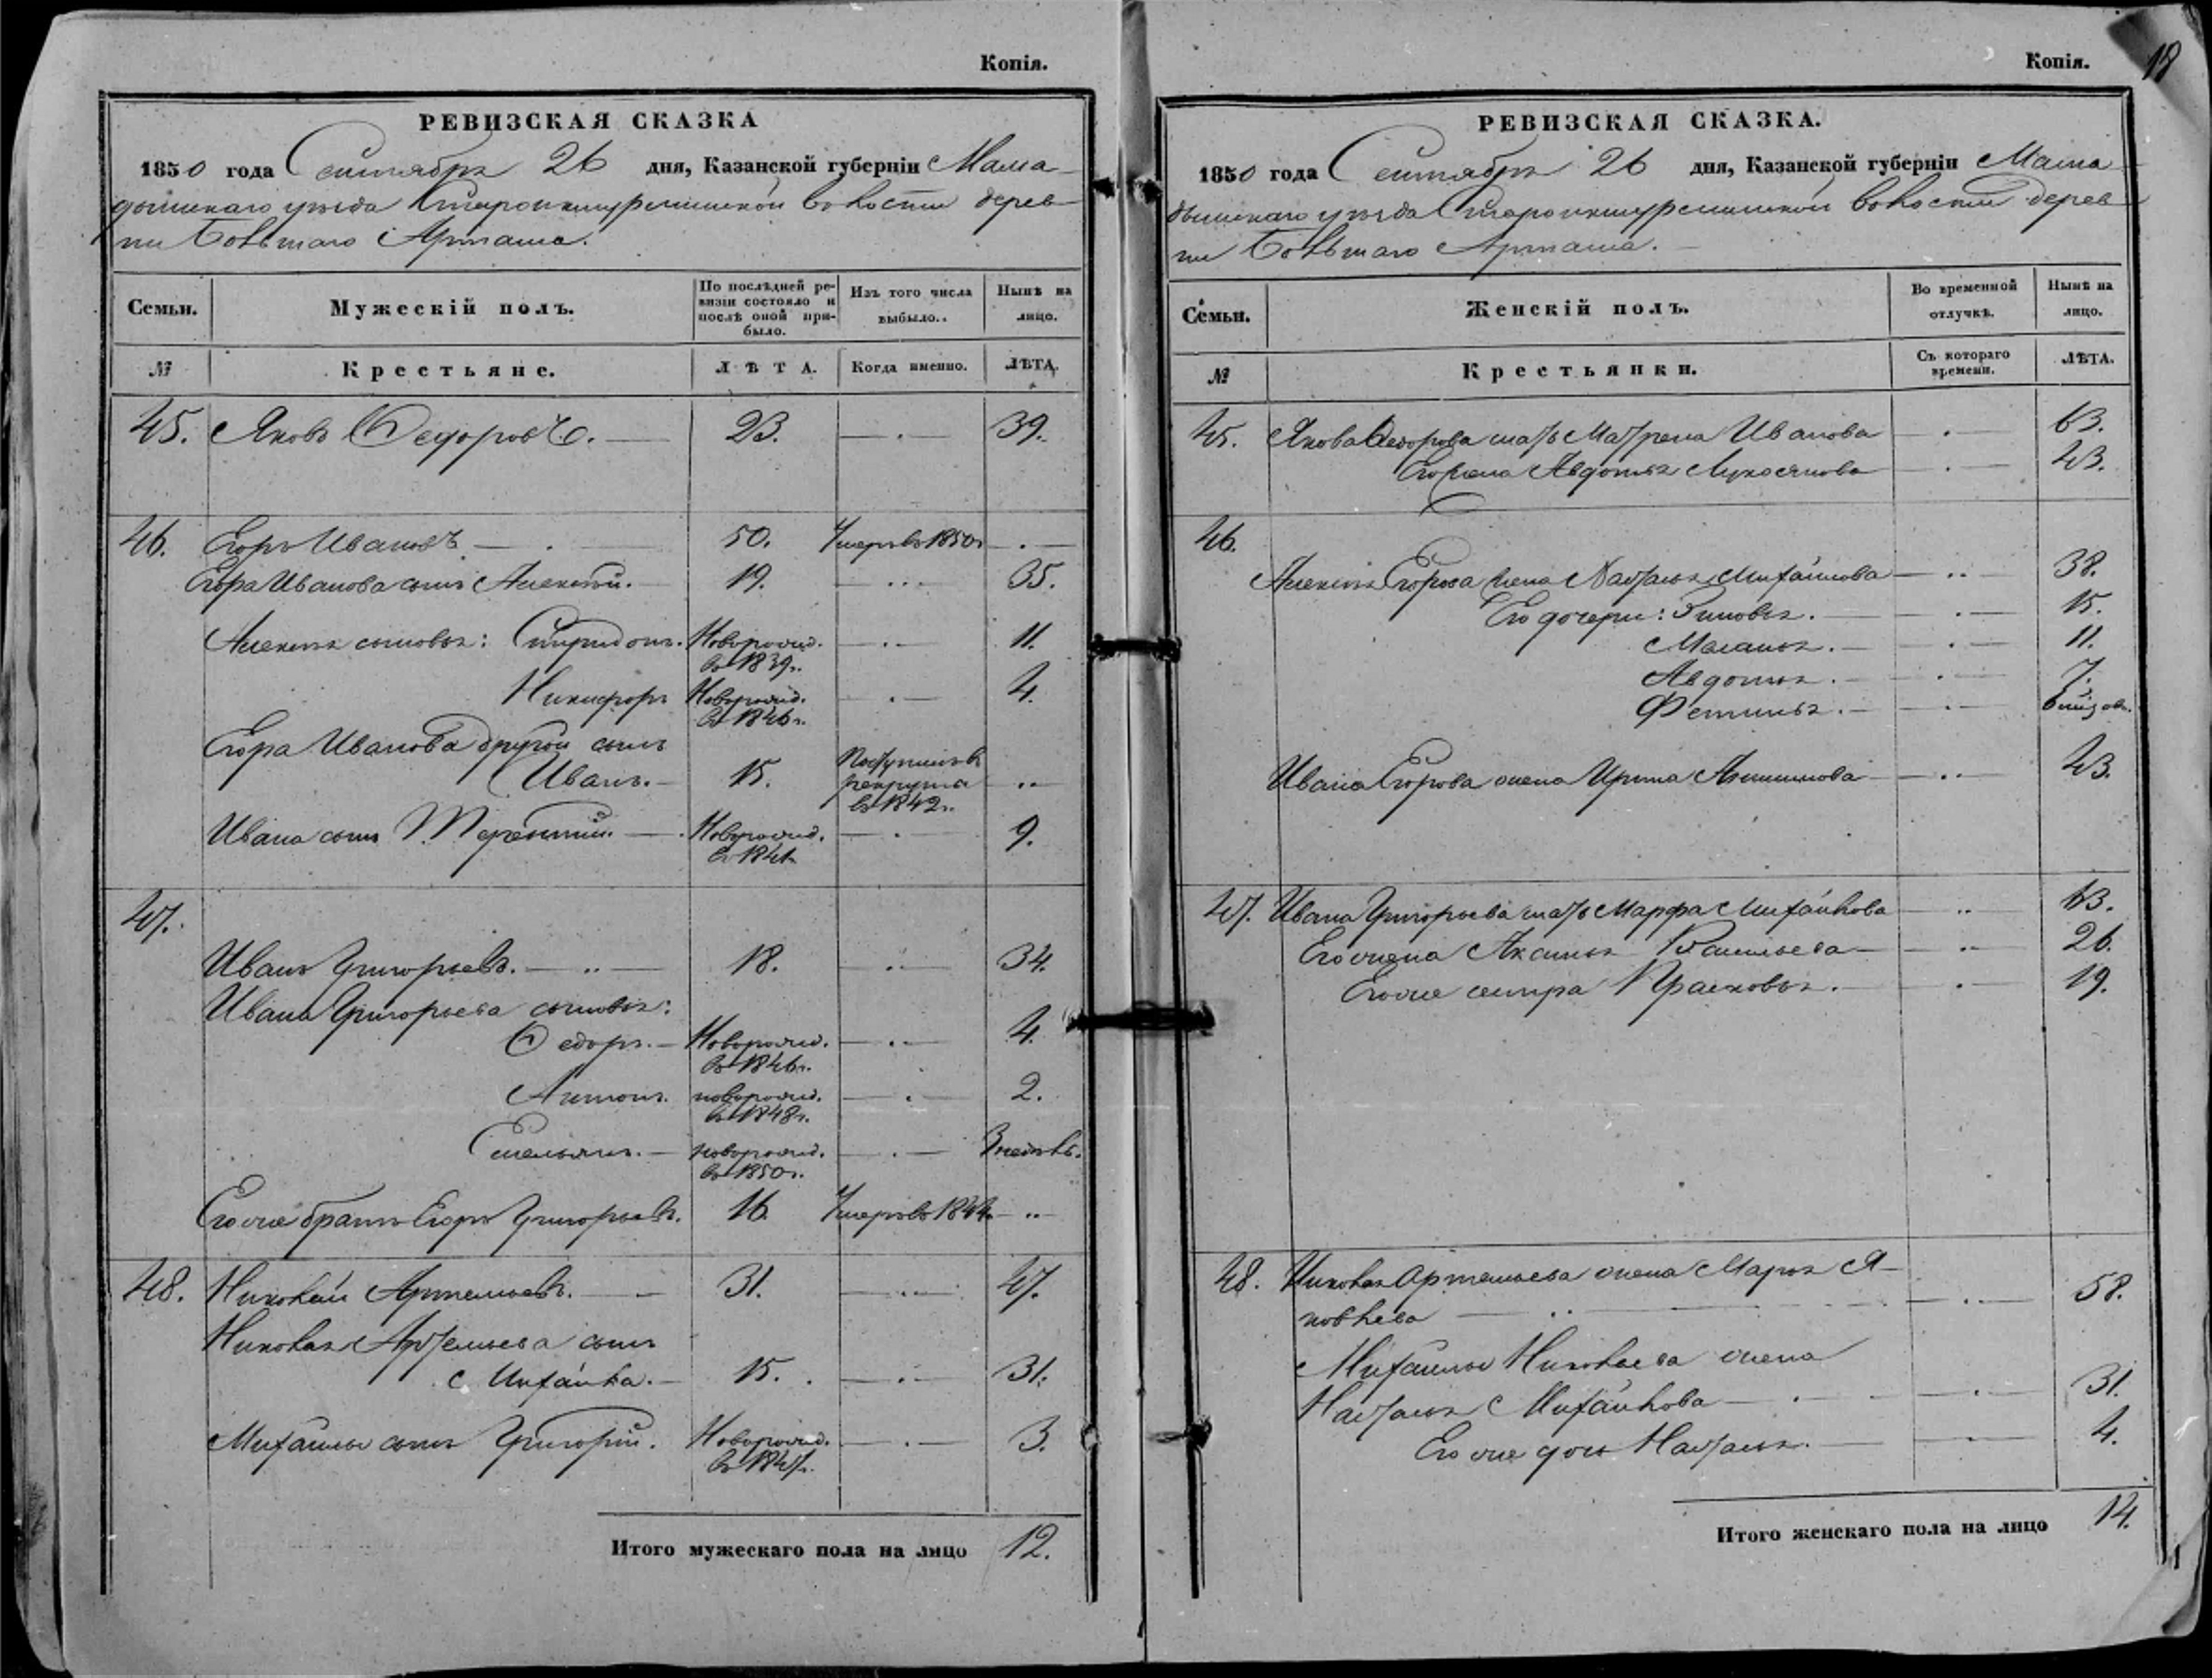 Копія.
РЕВИЗСКАЯ СКАЗКА
1850 года Сентября 26 дня, Казанской губерніи Мама-
дышскаго уѣзда волости дерев-
ни Большаго Арташа.
Семьи.
Мужескій полъ.
По послѣдней ре-
визіи состояло и
послѣ оной при-
было.
Изъ того числа
выбыло..
Нынѣ на
лицо.
№
Крестьяне.
ЛѢТА.
Когда именно.
ЛѢТА.
45. Яковъ Федоровъ. 23. 39.
46. Егоръ Ивановъ 50. Умеръ въ 1850г.
Егора Иванова сынъ Алексѣй. 19. 35.
Алексѣя сыновья: Спиридонъ. Новорожд. 11.
въ 1839г.
Никифоръ Новорожд. 4.
въ 1846г.
Егора Иванова другой сынъ
Иванъ. 15. Поступилъ въ
рекруты
въ 1842г.
Ивана сынъ Терентій. Новорожд. 9.
въ 1841
47.
Иванъ Григорьевъ. 18. 34.
Ивана Григорьева сыновья:
Федоръ. Новорожд. 4.
въ 1846г.
Антонъ. новорожд. 2.
въ 1848г.
Емельянъ. новорожд. 3 недѣль.
въ 1850г.
Его же братъ Егоръ Григорьевъ. 16. Умеръ въ 1844
48. Николай Артемьевъ. 31. 47.
Николая Артемьева сынъ
Михайла. 15. 31.
Михайлы сынъ Григорій. Новорожд. 3.
въ 1847г.
Итого мужескаго пола на лицо 12.
Копія.
18
РЕВИЗСКАЯ СКАЗКА.
1850 года Сентября 26 дня, Казанской губерніи Мама-
дышскаго уѣзда волости дерев-
ни Большаго Арташа.
Семьи.
Женскій полъ.
Во временной
отлучкѣ.
Нынѣ на
лицо.
№
Крестьянки.
Съ котораго
времени.
ЛѢТА.
45. Якова Федорова мать Матрена Иванова 63.
Его жена Авдотья Лукоянова 43.
46.
Алексѣя Егорова жена Настасья Михайлова 38.
Его дочери: Зиновья. 15.
Маланья. 11.
Авдотья. 7.
Фетинья.
Ивана Егорова жена Ирина 43.
47. Ивана Григорьева мать Марфа Михайлова 63.
Его жена Аксинья Васильева 26.
Его же сестра Прасковья. 19.
48. Николая Артемьева жена Марья Я-
ковлева 58.
Михайлы Николаева жена
Настасья Михайлова 31.
Его же дочь Настасья. 4.
Итого женскаго пола на лицо 14.